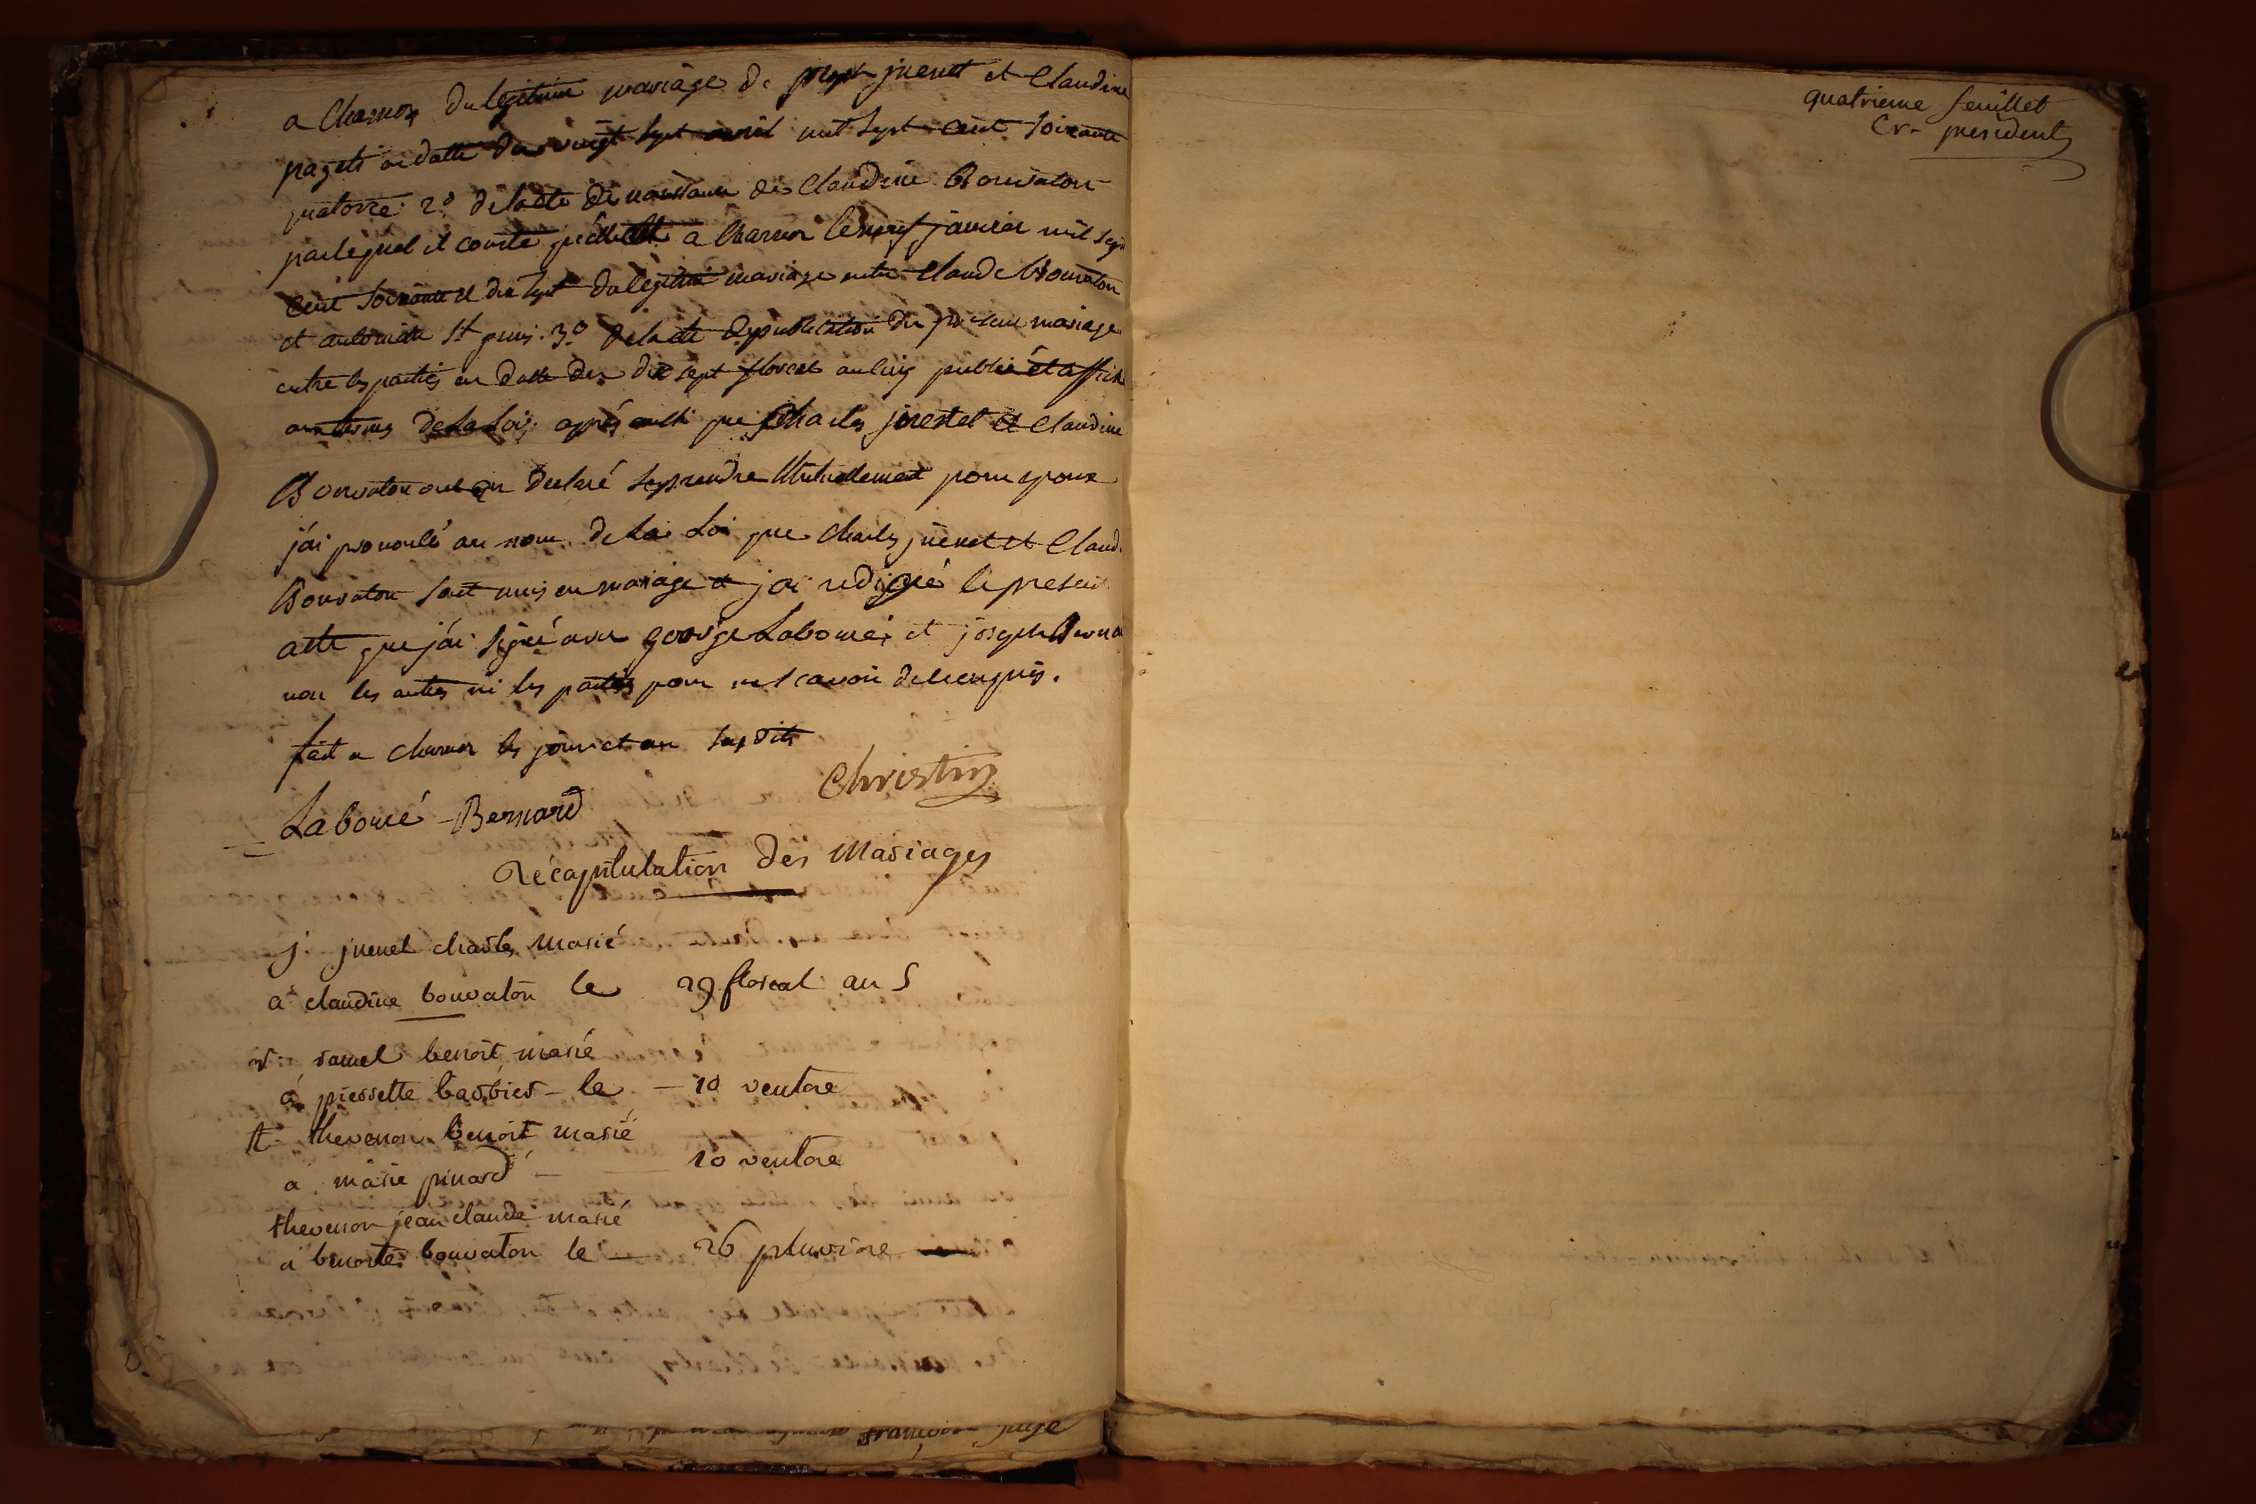 a Charnoz du legitime mariage de joseph juenet et Claudine
pagets en datte du vingt sept avril mil sept cent soixante
quatorze 2o de lacte de naissance de Claudine Bouvaton
par lequel il conste qu'elle est a Charnoz le neuf janvier mil sept
cent soixante et dix sept du legitime mariage entre Claude Bouvaton
et antoinette 3o de lacte de publication du present mariage
entre les parties en datte du dix sept floreal an cinq publié et affiché
aux termes de la Loi, après aussi que Charles juenet et Claudine
Bouvaton ont eu declaré se prendre Mutuellement pour epoux
j'ai prononcé au nom de la Loi que Charles juenet et Claud
Bouvaton sont unis en mariage et j'ai redigé le present
acte que j'ai signé avec george Labouré et joseph Berna
non les autres ni les parties pour ne scavoir de ce enquis.
fait a charnoz les jour et an susdits
Christin
Labouré Bernard
Récapitulation des Mariages
j. juenet charles marié
a claudine bouvaton le 29 floreal an 5
r. ramel benoit marié
a pierrette barbier - le - 10 ventose
tt. thevenon benoit marié
a marie pinard - 10 ventose
thevenon jean claude marié
a benoite bouvaton le - 26 pluviose
françois juge
quatrieme feuillet
Cr. president